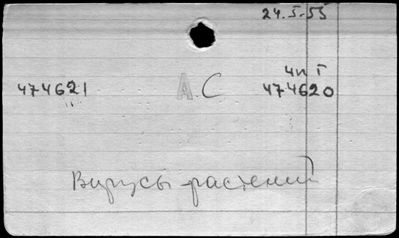 24.5-55
4п Т
474621 А.С 474620
Вирусы растений